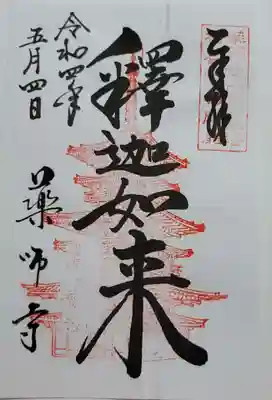 奉拝
釋迦如来
令和四年
五月四日
薬師寺